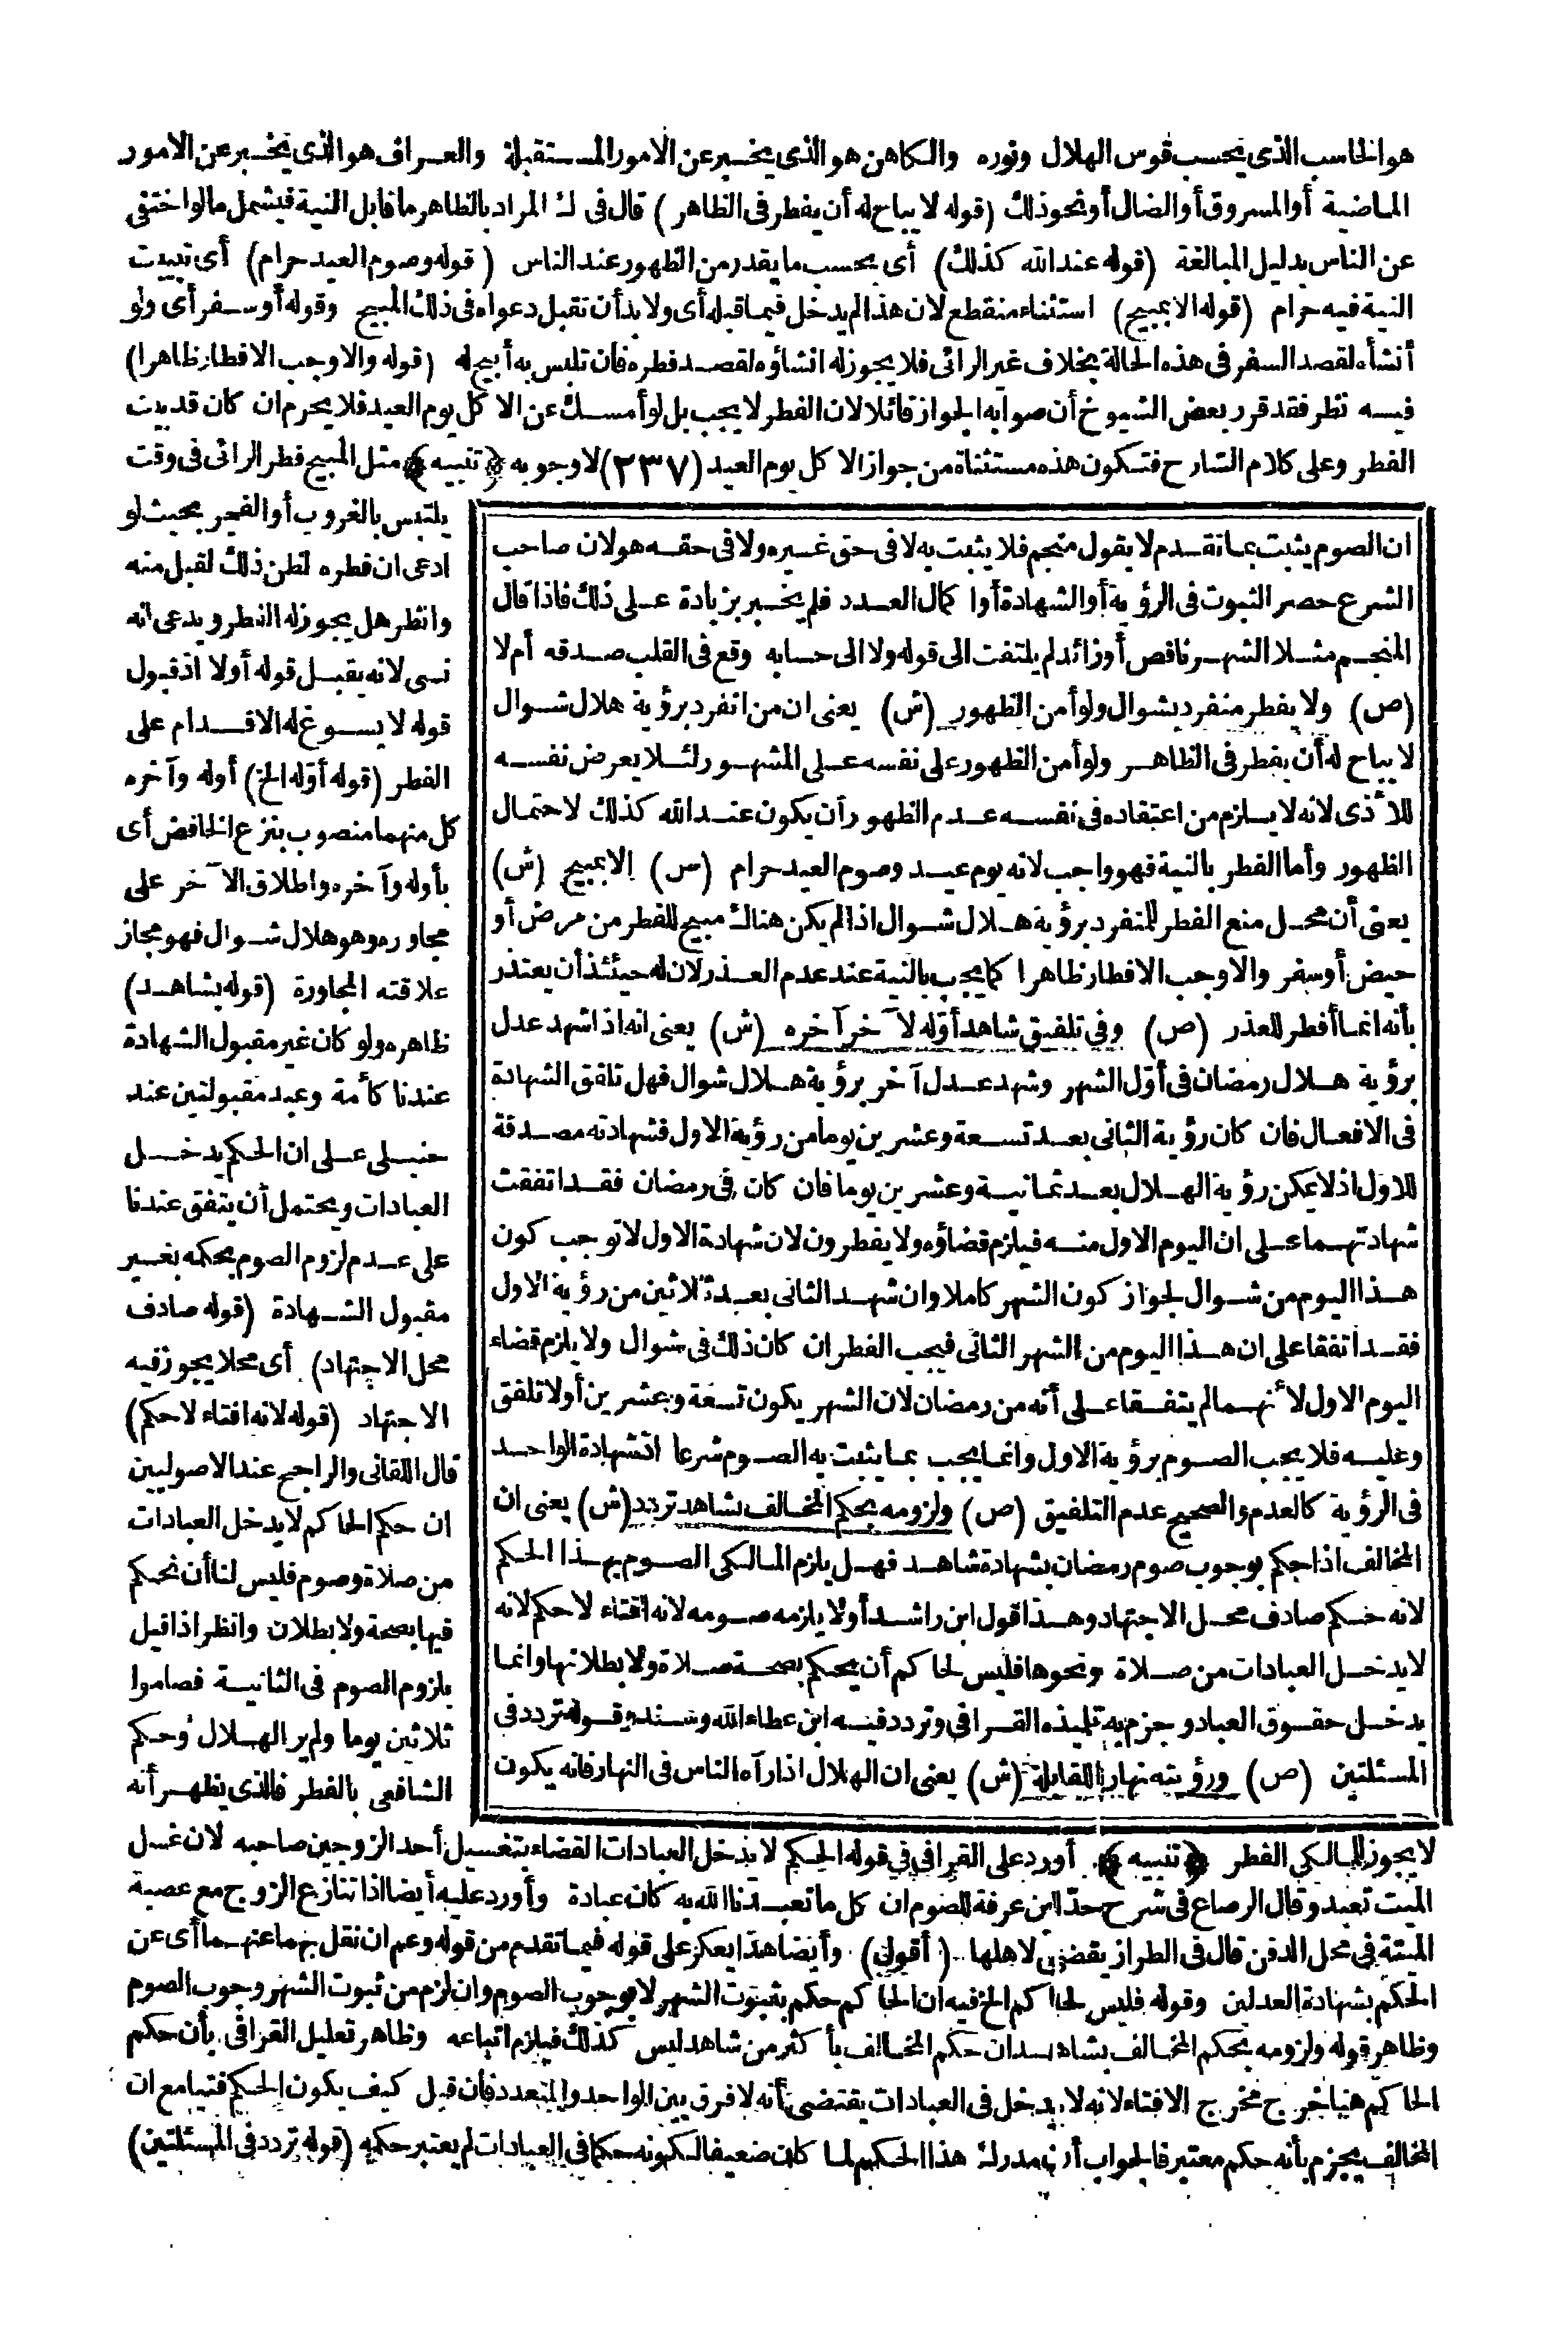 هو الحاسب الذي يحسب قوس الهلال ونوره والكاهن هو الذي يخبر عن الامور المستقبلة والعراف هو الذي يخبر عن الامور
الماضية أو المسروق أو الضال أو نحو ذلك (قوله لا يباح له أن يفطر في الظاهر) قال في ك المراد بالظاهر ما قابل النية فيشمل ما لو اختفى
عن الناس بدليل المبالغة (قوله عند الله كذلك) أي بحسب ما يقدر من الظهور عند الناس (قوله وصوم العيد حرام) أي تبييت
النية فيه حرام (قوله الا بمبيح) استثناء منقطع لان هذا لم يدخل فيما قبله أي ولا بد أن تقبل دعواه في ذلك المبيح وقوله أو سفر أي ولو
أنشأه لقصد السفر في هذه الحالة بخلاف غير الرائى فلا يجوز له انشاؤه لقصد فطره فان تلبس به أبيح له (قوله والا وجب الافطار ظاهرا)
فيه نظر فقد قرر بعض الشيوخ أن صوابه الجواز قائلا لان الفطر لا يجب بل لو أمسك عن الاكل يوم العيد فلا يحرم ان كان قد بيت
الفطر وعلى كلام الشارح فتكون هذه مستثناة من جواز الاكل يوم العيد (٢٣٧) لا وجوبه ﴿تنبيه﴾ مثل المبيح فطر الرائى في وقت
يلتبس بالغروب أو الفجر بحيث لو
ادعى ان فطره لظن ذلك لقبل منه
وانظر هل يجوز له الفطر ويدعى انه
نسى لانه يقبل قوله أولا اذ قبول
قوله لا يسوغ له الاقدام على
الفطر (قوله أوله الخ) أوله وآخره
كل منهما منصوب بنزع الخافض أي
بأوله وآخره واطلاق الآخر على
مجاوره وهو هلال شوال فهو مجاز
علاقته المجاورة (قوله بشاهد)
ظاهره ولو كان غير مقبول الشهادة
عندنا كأمة وعبد مقبولتين عند
حنبلى على ان الحكم يدخل
العبادات ويحتمل أن يتفق عندنا
على عدم لزوم الصوم بحكمه بغير
مقبول الشهادة (قوله صادف
محل الاجتهاد) أي محلا يجوز فيه
الاجتهاد (قوله لانه افتاء لا حكم)
قال اللقانى والراجح عند الاصوليين
ان حكم الحاكم لا يدخل العبادات
من صلاة وصوم فليس لنا أن نحكم
فيها بصحة ولا بطلان وانظر اذا قيل
بلزوم الصوم في الثانية فصاموا
ثلاثين يوما ولم ير الهلال وحكم
الشافعى بالفطر فالذي يظهر أنه
ان الصوم يثبت بما تقدم لا بقول منجم فلا يثبت به لا في حق غيره ولا في حقه هو لان صاحب
الشرع حصر الثبوت في الرؤية أو الشهادة أو اكمال العدد فلم يخبر بزيادة على ذلك فاذا قال
المنجم مثلا الشهر ناقص أو زائد لم يلتفت الى قوله ولا الى حسابه وقع في القلب صدقه أم لا
(ص) ولا يفطر منفرد بشوال ولو أمن الظهور (ش) يعنى ان من انفرد برؤية هلال شوال
لا يباح له أن يفطر في الظاهر ولو أمن الظهور على نفسه على المشهور لئلا يعرض نفسه
للأذى لانه لا يلزم من اعتقاده في نفسه عدم الظهور أن يكون عند الله كذلك لاحتمال
الظهور وأما الفطر بالنية فهو واجب لانه يوم عيد وصوم العيد حرام (ص) الا بمبيح (ش)
يعنى أن محل منع الفطر للمنفرد برؤية هلال شوال اذا لم يكن هناك مبيح للفطر من مرض أو
حيض أو سفر والا وجب الافطار ظاهرا كما يجب بالنية عند عدم العذر لان له حينئذ أن يعتذر
بأنه انما أفطر للعذر (ص) وفي تلفيق شاهد أوله لآخر آخره (ش) يعنى انه اذا شهد عدل
برؤية هلال رمضان في أول الشهر وشهد عدل آخر برؤية هلال شوال فهل تلفق الشهادة
في الافعال فان كان رؤية الثانى بعد تسعة وعشرين يوما من رؤية الاول فشهادته مصدقة
للاول اذ لا يمكن رؤية الهلال بعد ثمانية وعشرين يوما فان كان في رمضان فقد اتفقت
شهادتهما على ان اليوم الاول منه فيلزم قضاؤه ولا يفطرون لان شهادة الاول لا توجب كون
هذا اليوم من شوال لجواز كون الشهر كاملا وان شهد الثانى بعد ثلاثين من رؤية الاول
فقد اتفقا على ان هذا اليوم من الشهر الثانى فيجب الفطر ان كان ذلك في شوال ولا يلزم قضاء
اليوم الاول لأنهما لم يتفقا على أنه من رمضان لان الشهر يكون تسعة وعشرين أو لا تلفق
وعليه فلا يجب الصوم برؤية الاول وانما يجب بما يثبت به الصوم شرعا اذ شهادة الواحد
في الرؤية كالعدم والصحيح عدم التلفيق (ص) ولزومه بحكم المخالف بشاهد تردد (ش) يعنى ان
المخالف اذا حكم بوجوب صوم رمضان بشهادة شاهد فهل يلزم المالكى الصوم بهذا الحكم
لانه حكم صادف محل الاجتهاد وهذا قول ابن راشد أو لا يلزمه صومه لانه افتاء لا حكم لانه
لا يدخل العبادات من صلاة ونحوها فليس لحاكم أن يحكم بصحة صلاة ولا بطلانها وانما
يدخل حقوق العباد وجزم به تلميذه القرافي وتردد فيه ابن عطاء الله وسند وقوله تردد في
المسئلتين (ص) ورؤيته نهارا للقابلة (ش) يعنى ان الهلال اذا رآه الناس في النهار فانه يكون
لا يجوز للمالكي الفطر ﴿تنبيه﴾ أورد على القرافي في قوله الحكم لا يدخل العبادات القضاء بتغسيل أحد الزوجين صاحبه لان غسل
الميت تعبد وقال الرصاع في شرح حد ابن عرفة للصوم ان كل ما تعبدنا الله به كان عبادة وأورد عليه أيضا اذا تنازع الزوج مع عصبة
الميتة في محل الدفن قال في الطراز يقضى لاهلها (أقول) وأيضا هذا يعكر على قوله فيما تقدم من قوله وعم ان نقل بهما عنهما أي عن
الحكم بشهادة العدلين وقوله فليس لحاكم الخ فيه ان الحاكم حكم بثبوت الشهر لا بوجوب الصوم وان لزم من ثبوت الشهر وجوب الصوم
وظاهر قوله ولزومه بحكم المخالف بشاهد ان حكم المخالف بأكثر من شاهد ليس كذلك فيلزم اتباعه وظاهر تعليل القرافي بأن حكم
الحاكم هنا خرج مخرج الافتاء لانه لا يدخل في العبادات يقتضى أنه لا فرق بين الواحد والمتعدد فان قيل كيف يكون الحكم فتيا مع ان
المخالف يجزم بأنه حكم معتبر فالجواب أن مدرك هذا الحكم لما كان ضعيفا لكونه حكما في العبادات لم يعتبر حكمه (قوله تردد في المسئلتين)